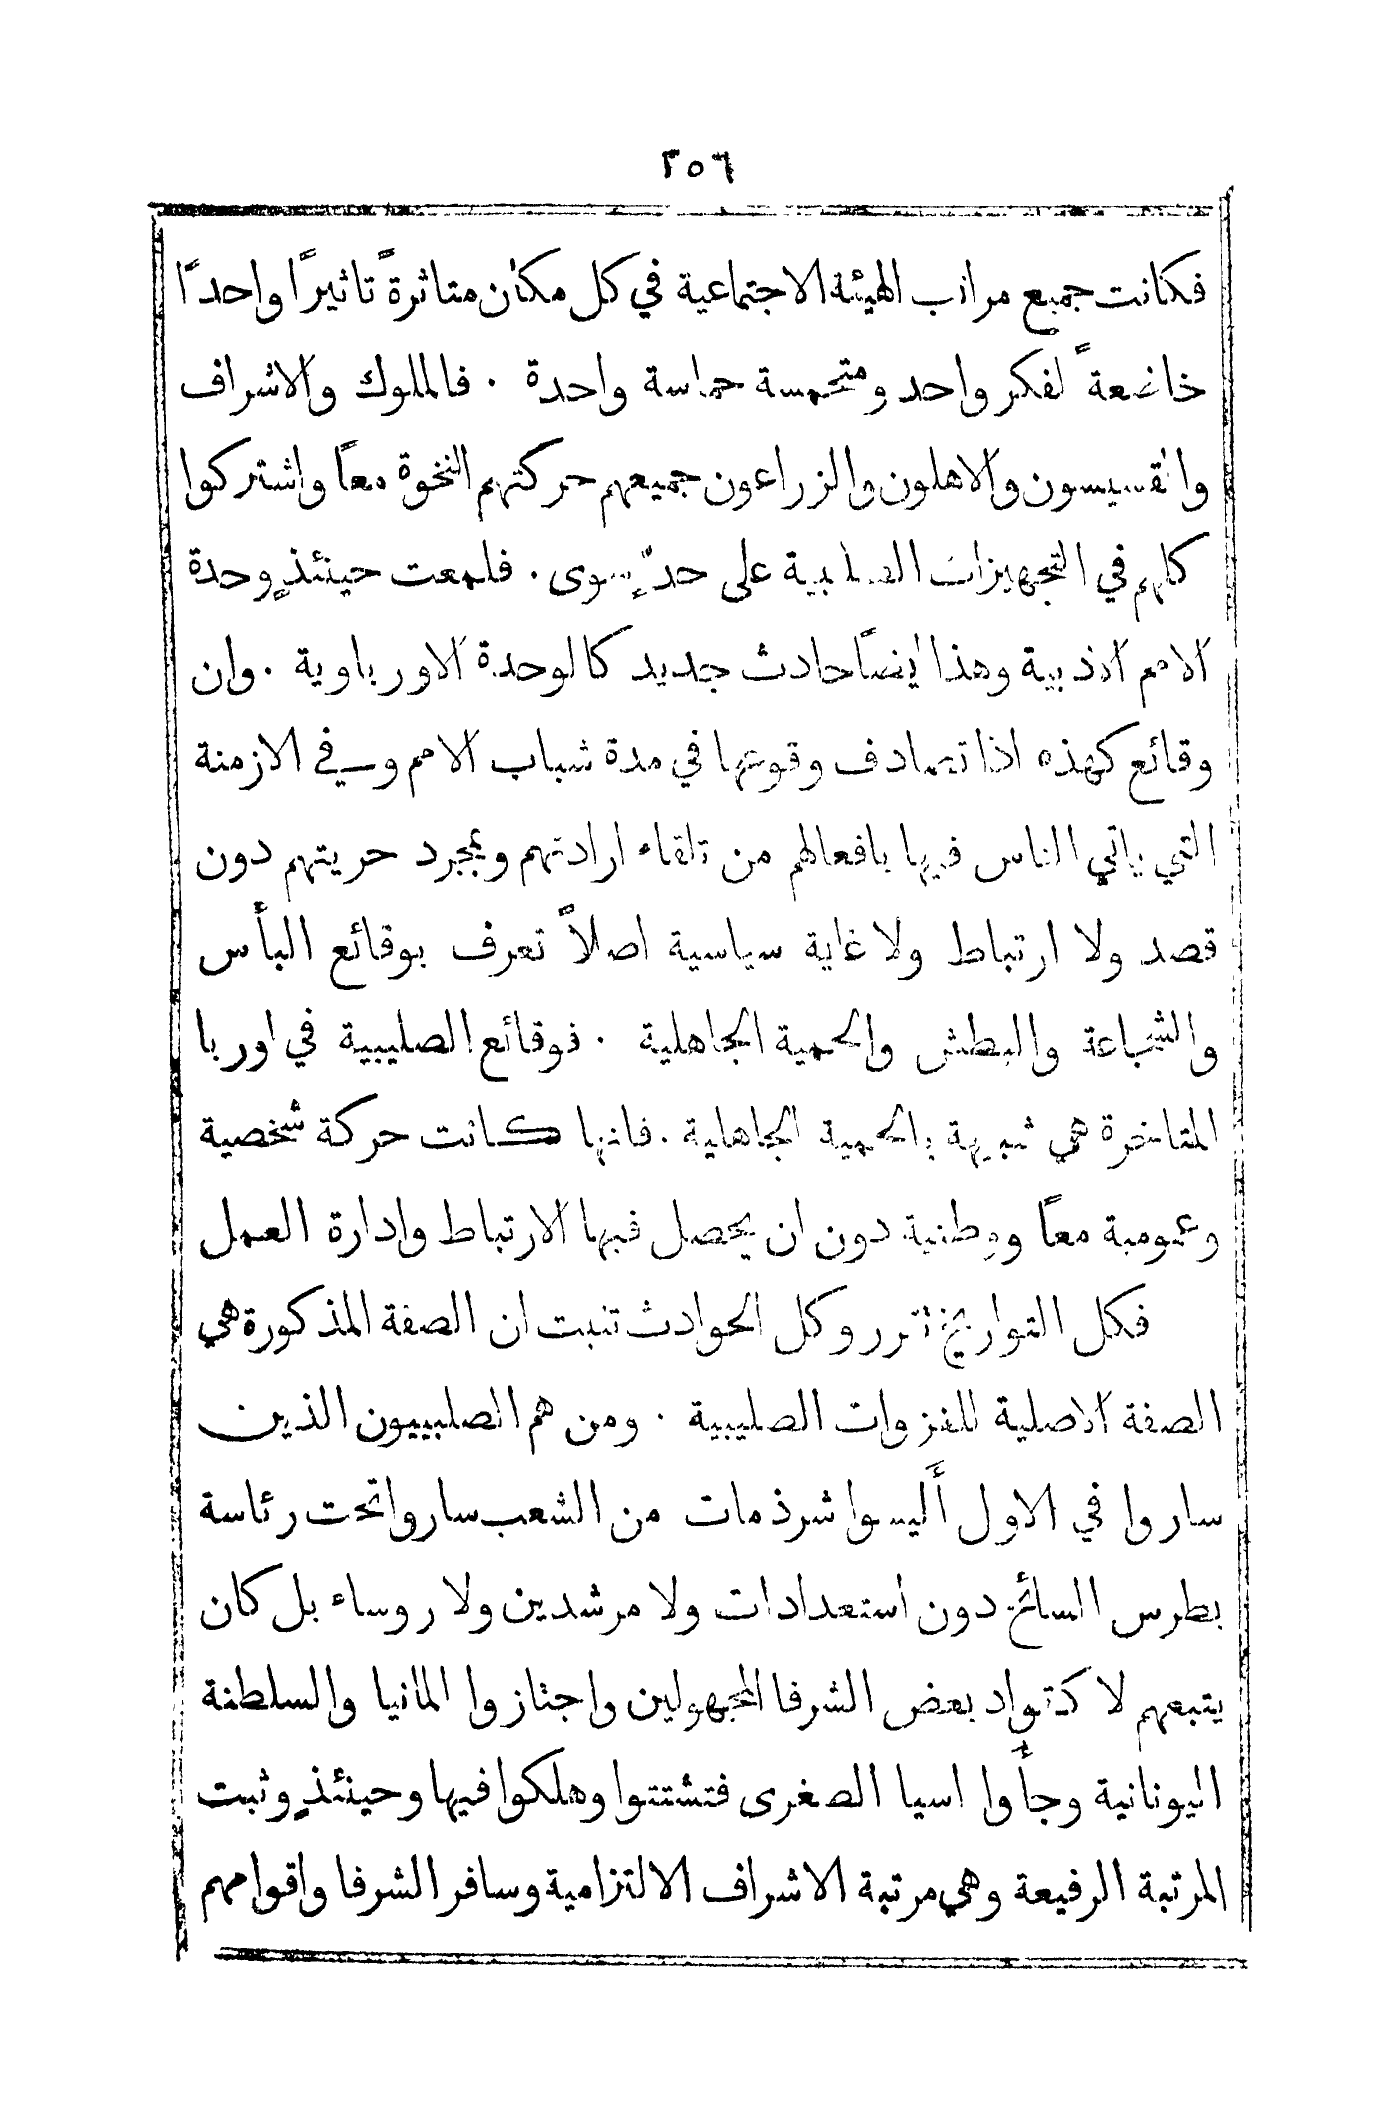 ٢٥٦
فكانت جميع مراتب الهيئة الاجتماعية في كل مكان متاثرةً تاثيرًا واحدًا
خاضعةً لفكر واحد ومتحمسة حماسة واحدة . فالملوك والاشراف
والقسيسون والاهلون والزراعون جميعهم حركتهم النخوة معًا واشتركوا
كلهم في التجهيزات الصليبية على حدٍّ سوى . فلمعت حينئذٍ وحدة
الامم الاذبية وهذا ايضًا حادث جديد كالوحدة الاورباوية . وان
وقائع كهذه اذا تصادف وقوعها في مدة شباب الامم وفي الازمنة
التي ياتي الناس فيها بافعالهم من تلقاء ارادتهم وبمجرد حريتهم دون
قصد ولا ارتباط ولا غاية سياسية اصلاً تعرف بوقائع البأس
والشجاعة والبطش والحمية الجاهلية . فوقائع الصليبية في اوربا
المتاخرة هي شبيهة بالحمية الجاهلية . فانها كانت حركة شخصية
وعمومية معًا ووطنية دون ان يحصل فيها الارتباط وادارة العمل
فكل التواريخ تقرر وكل الحوادث تثبت ان الصفة المذكورة هي
الصفة الاصلية للغزوات الصليبية . ومن هم الصليبيون الذين
ساروا في الاول أليسوا شرذمات من الشعب ساروا تحت رئاسة
بطرس السائح دون استعدادات ولا مرشدين ولا روساء بل كان
يتبعهم لا كقواد بعض الشرفا المجهولين واجتازوا المانيا والسلطنة
اليونانية وجأوا اسيا الصغرى فتشتتوا وهلكوا فيها وحينئذٍ وثبت
المرتبة الرفيعة وهي مرتبة الاشراف الالتزامية وسافر الشرفا واقوامهم